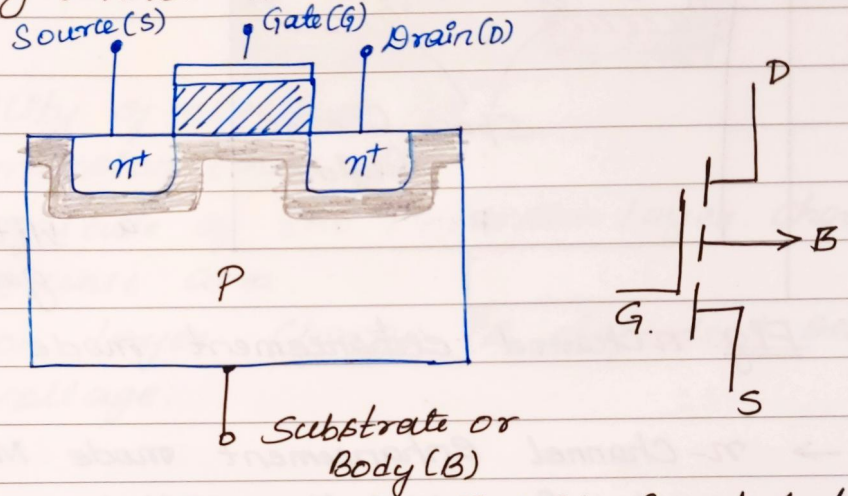 Source(S)
Gate(G)
Drain(D)
n+
n+
P
Substrate or
Body(B)
D
B
G.
S